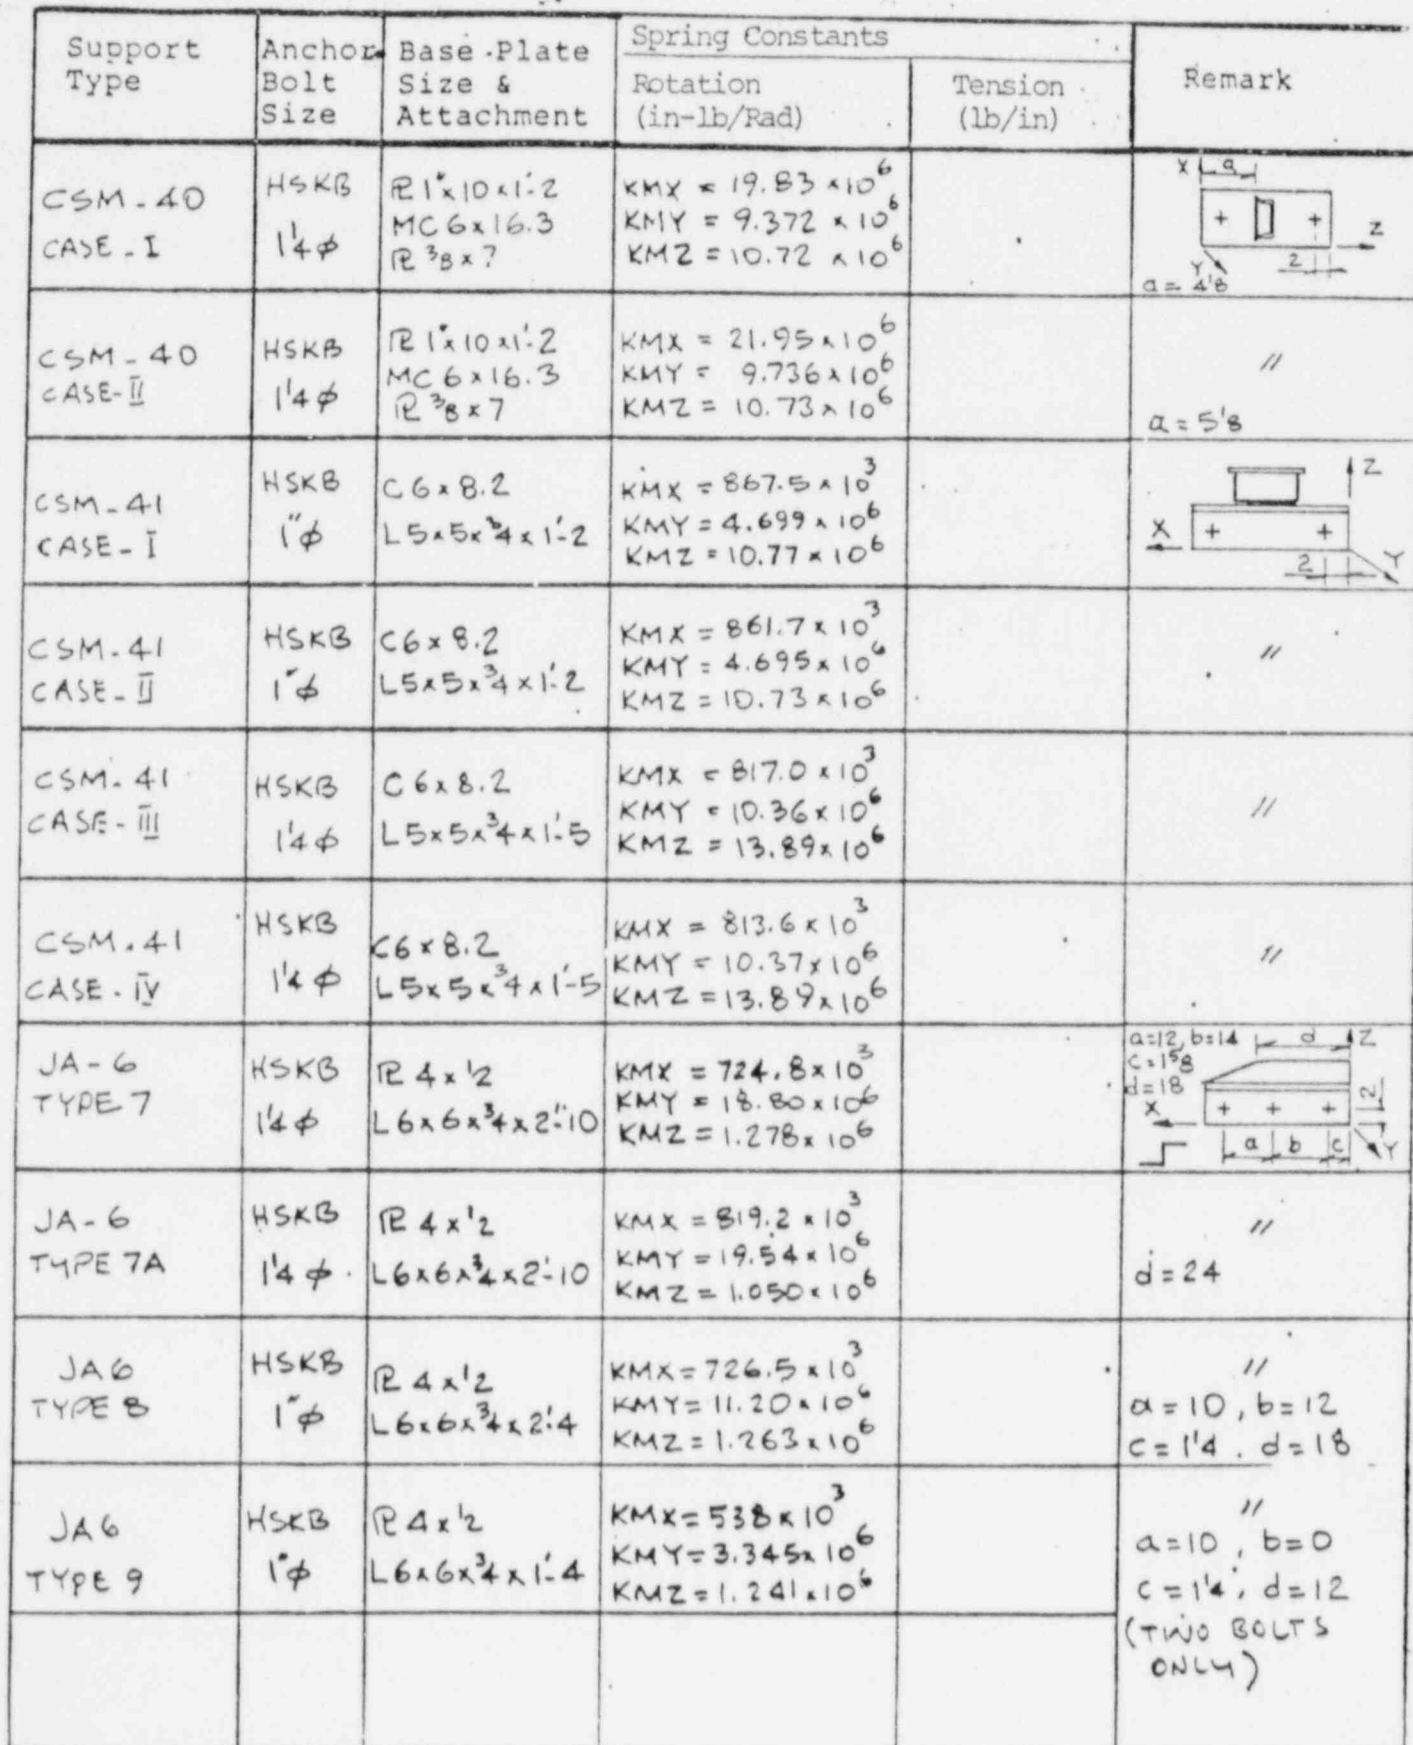 Support Type
Anchor Bolt Size
Base Plate Size & Attachment
Spring Constants
Rotation (in-lb/Rad)
Tension (lb/in)
Remark
CSM-40 CASE-I
HSKB 1 1/4 φ
PL 1"x10x1'-2
MC 6x16.3
PL 3/8 x 7
KMX = 19.83 x10^6
KMY = 9.372 x10^6
KMZ = 10.72 x10^6
X a Z
2
Y
a = 4 1/8
CSM-40 CASE-II
HSKB 1 1/4 φ
PL 1"x10x1'-2
MC 6x16.3
PL 3/8 x 7
KMX = 21.95 x10^6
KMY = 9.736 x10^6
KMZ = 10.73 x10^6
"
a = 5 1/8
CSM-41 CASE-I
HSKB 1"φ
C 6x8.2
L5x5x3/4x1'-2
KMX = 867.5 x10^3
KMY = 4.699 x10^6
KMZ = 10.77 x10^6
Z
X
2 Y
CSM-41 CASE-II
HSKB 1"φ
C6x8.2
L5x5x3/4x1'-2
KMX = 861.7 x10^3
KMY = 4.695 x10^6
KMZ = 10.73 x10^6
"
CSM-41 CASE-III
HSKB 1 1/4 φ
C 6x8.2
L5x5x3/4x1'-5
KMX = 817.0 x10^3
KMY = 10.36 x10^6
KMZ = 13.89 x10^6
"
CSM-41 CASE-IV
HSKB 1 1/4 φ
C6x8.2
L5x5x3/4x1'-5
KMX = 813.6 x10^3
KMY = 10.37 x10^6
KMZ = 13.89 x10^6
"
JA-6 TYPE 7
HSKB 1 1/4 φ
PL 4 x 1/2
L6x6x3/4x2'-10
KMX = 724.8 x10^3
KMY = 18.80 x10^6
KMZ = 1.278 x10^6
a=12, b=14
c=1 5/8
d=18
d Z
X 2
a b c Y
JA-6 TYPE 7A
HSKB 1 1/4 φ
PL 4 x 1/2
L6x6x3/4x2'-10
KMX = 819.2 x10^3
KMY = 19.54 x10^6
KMZ = 1.050 x10^6
"
d = 24
JA6 TYPE 8
HSKB 1"φ
PL 4 x 1/2
L6x6x3/4x2'-4
KMX = 726.5 x10^3
KMY = 11.20 x10^6
KMZ = 1.263 x10^6
"
a = 10, b = 12
c = 1 1/4, d = 18
JA6 TYPE 9
HSKB 1"φ
PL 4 x 1/2
L6x6x3/4x1'-4
KMX = 538 x10^3
KMY = 3.345 x10^6
KMZ = 1.241 x10^6
"
a = 10, b = 0
c = 1 1/4, d = 12
(TWO BOLTS
ONLY)